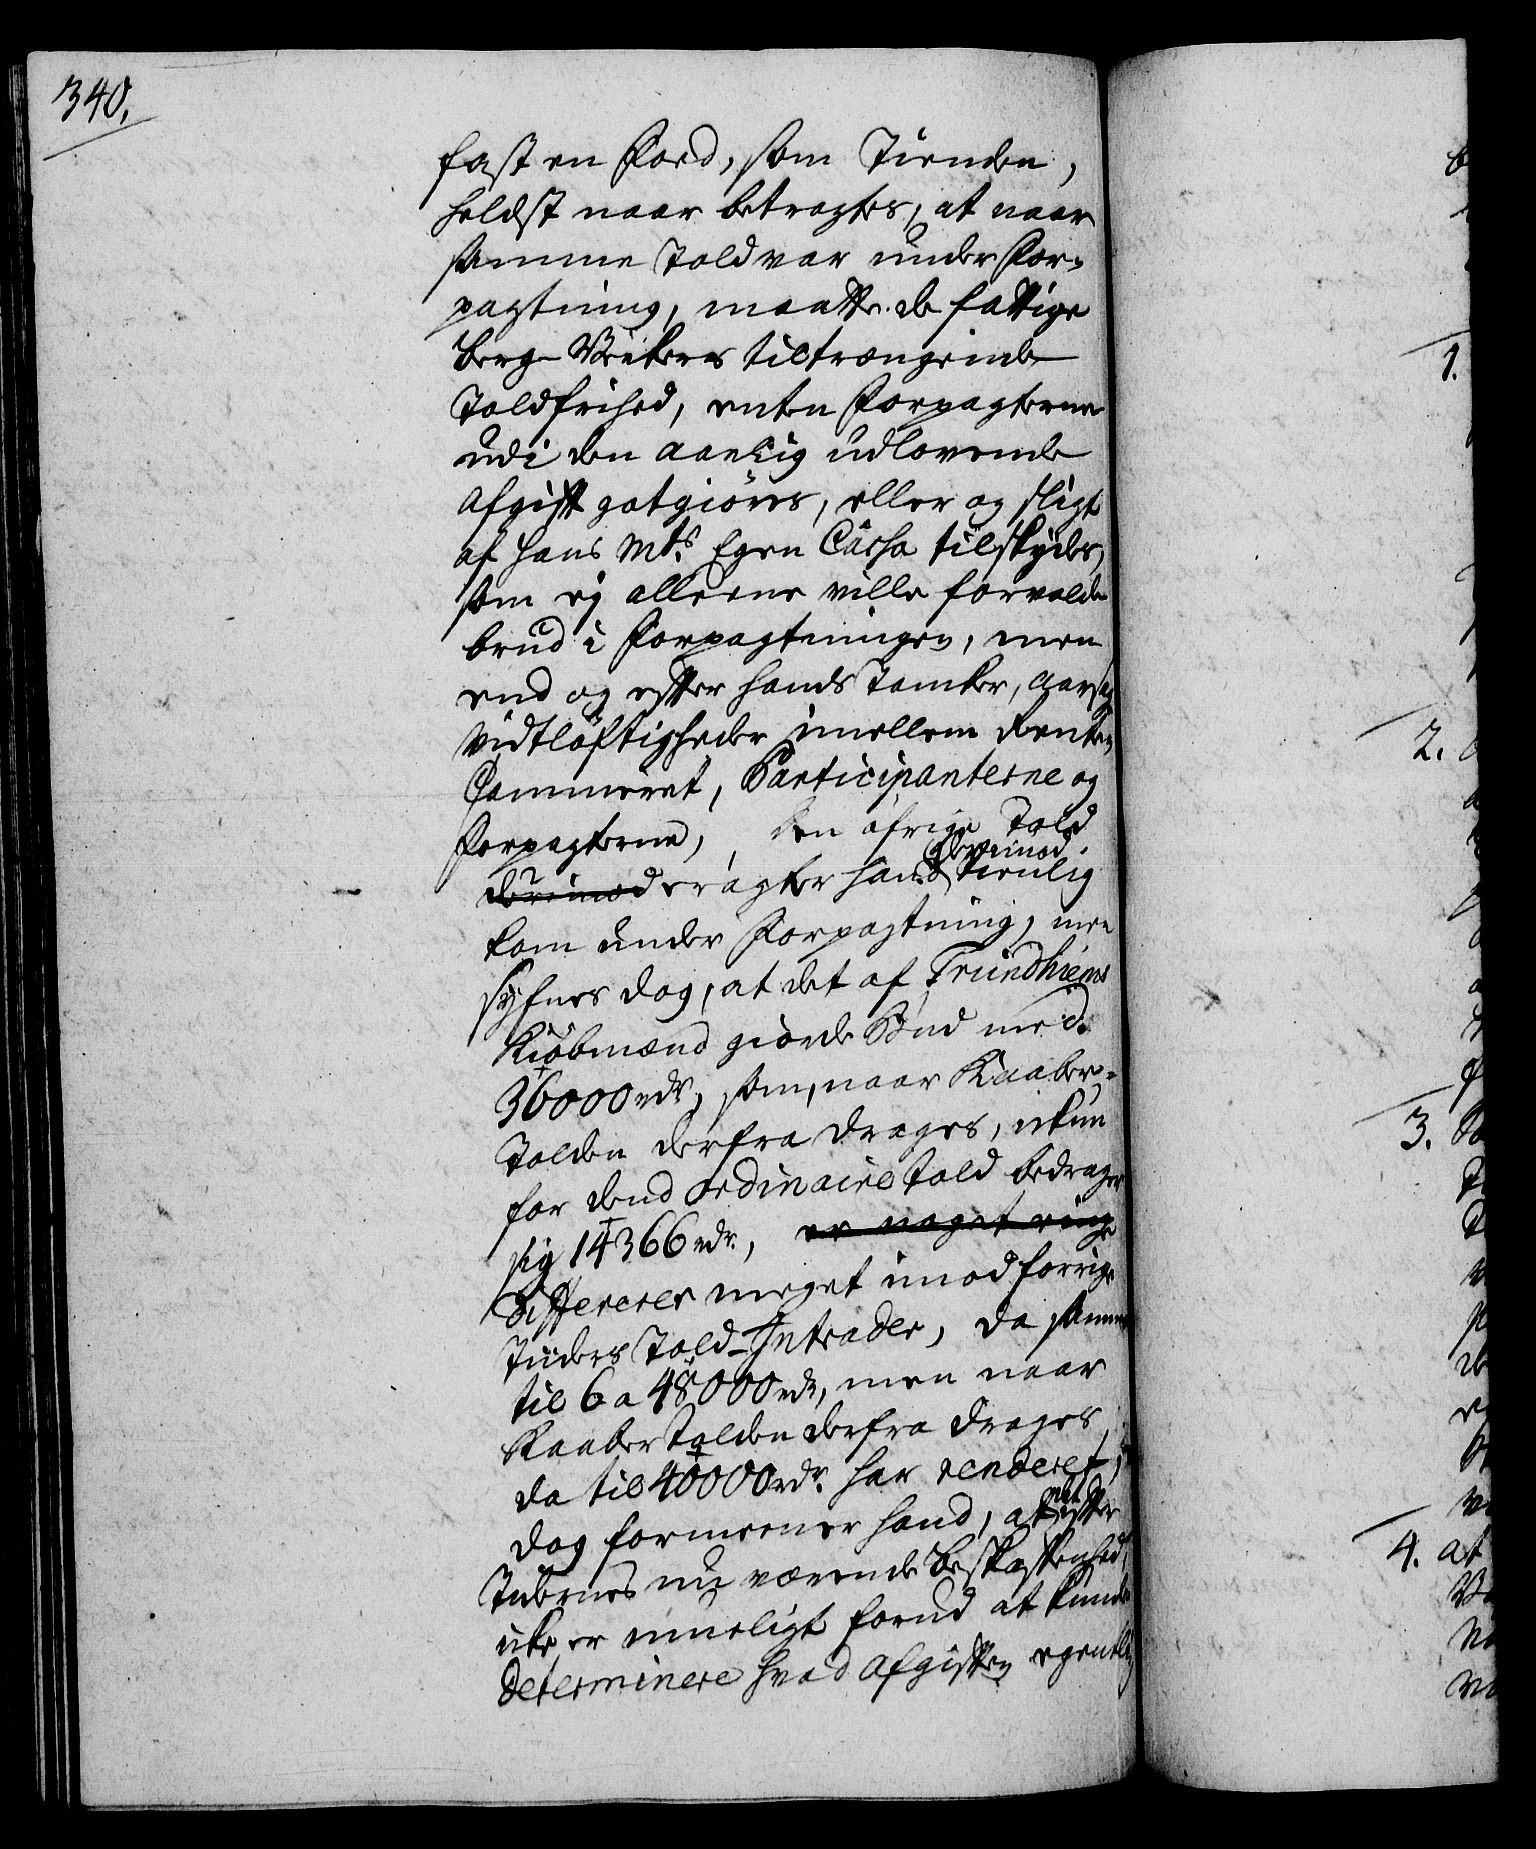 340.
fast en Foed, som Tienden,
heldst naar betragtes, at naar
samme Told var under For-
pagtning, maatte de fattige
Berg-Værkers tiltrængende
Toldfrihed, enten Forpagterne
udi den aarlig udlovende
Afgift gotgiøres, eller og sligt
af Hans Mts. Egen Cassa tilskydes,
som ej alleene ville forvolde
brud i Forpagtningen, men
end og efter hands Tanker, aarsage
Vidtløftigheder imellem Rente
Cammeret, Participanterne og
Forpagterne, den øfrige Told
derimod eragter hand derimod tienlig
kom under Forpagtning, men
synes dog, at det af Trundhiems
Kiøbmænd giorde Bud med
36000 rdr, som, naar Kaaber-
Tolden derfra drages, ikun
for dend ordinaire Told bedrager
sig 14366 rdr., er noget ringe
differerer meget imod forrige
Tiiders Told-Intrader, da samme
til 6 a 48000 rdr, men naar
Kaaber Tolden derfra drages,
da til 40000 rdr. har renderet,
dog formeener hand, at efter
Tidernes nu værende Beskaffenhed,
ike er mueligt forud at kunde
determinere hvad Afgiften egentlig
1.
2.
3.
4. at